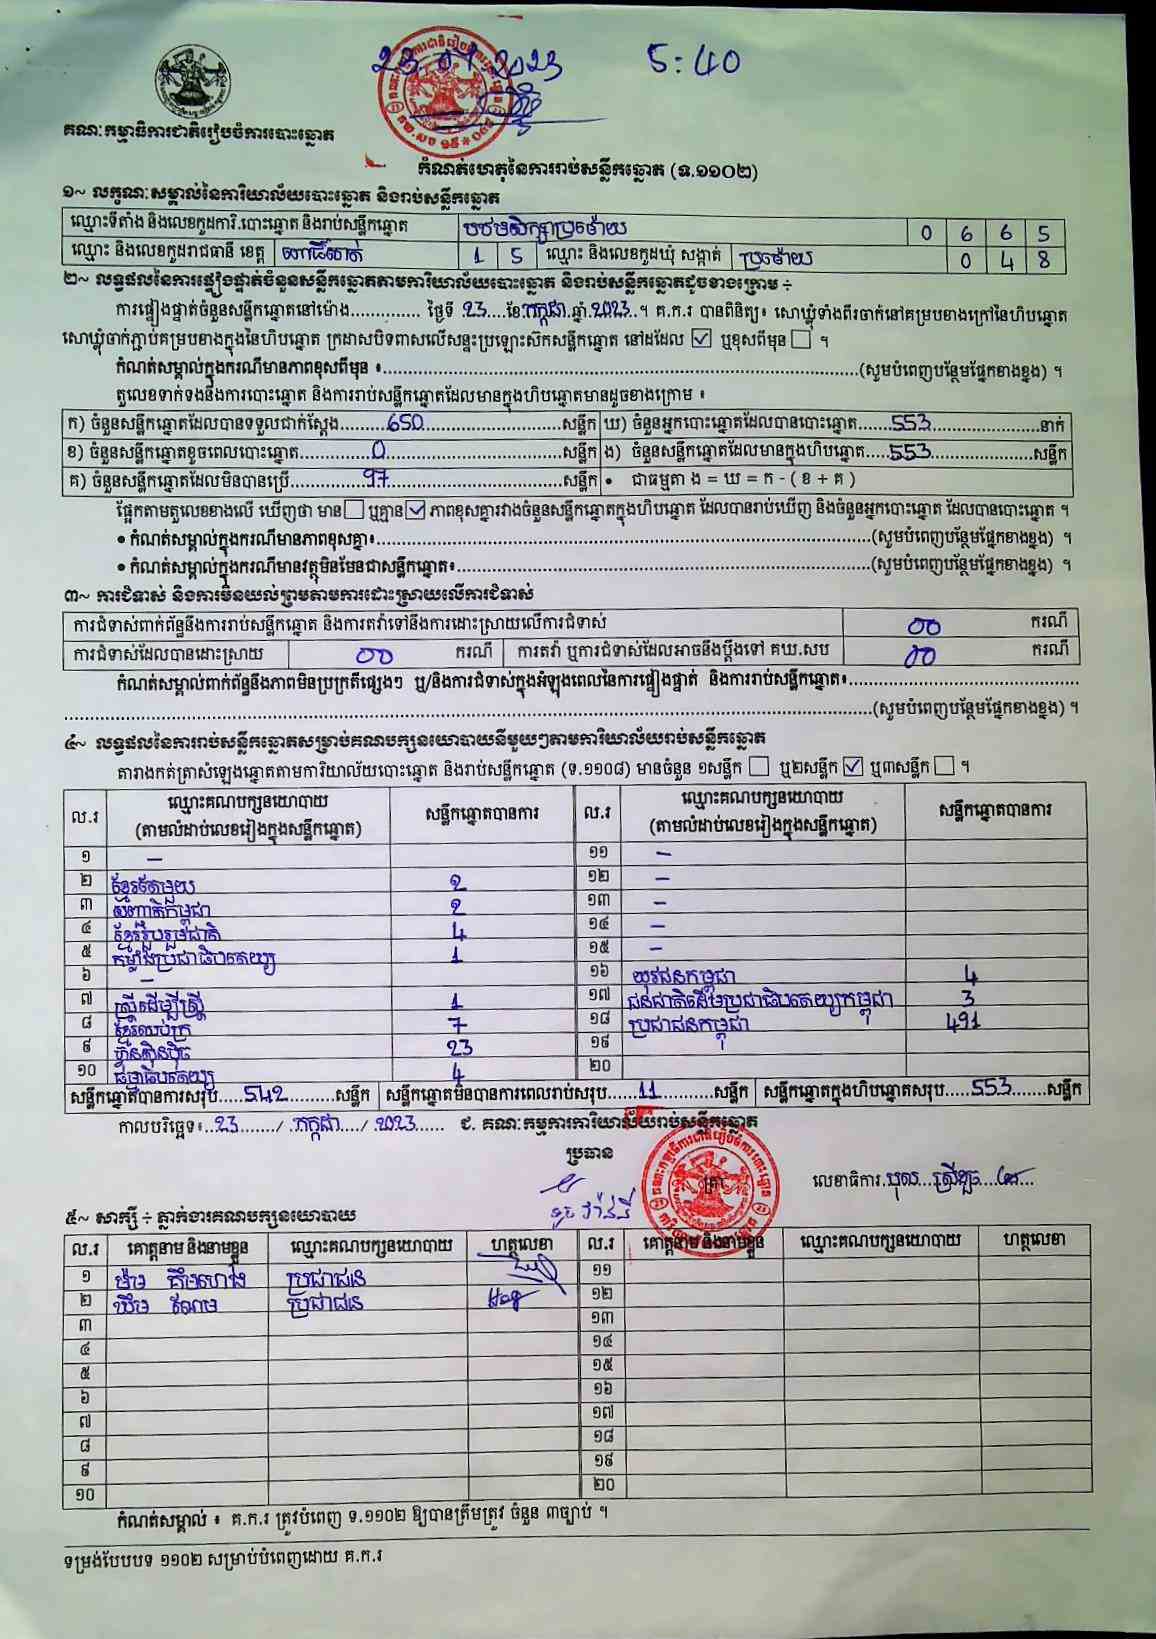 23.07 2023 5:40
គណៈកម្មាធិការជាតិរៀបចំការបោះឆ្នោត
កំណត់ហេតុនៃការរាប់សន្លឹកឆ្នោត (ទ.១១០២)
១~ លក្ខណៈសម្គាល់នៃការិយាល័យបោះឆ្នោត និងរាប់សន្លឹកឆ្នោត
ឈ្មោះទីតាំង និងលេខកូដការិ.បោះឆ្នោត និងរាប់សន្លឹកឆ្នោត បឋមសិក្សាប្រម៉ោយ 0 6 6 5
ឈ្មោះ និងលេខកូដរាជធានី ខេត្ត ពោធិ៍សាត់ 1 5 ឈ្មោះ និងលេខកូដឃុំ សង្កាត់ ប្រម៉ោយ 0 4 8
២~ លទ្ធផលនៃការផ្ទៀងផ្ទាត់ចំនួនសន្លឹកឆ្នោតតាមការិយាល័យបោះឆ្នោត និងរាប់សន្លឹកឆ្នោតដូចខាងក្រោម ÷
ការផ្ទៀងផ្ទាត់ចំនួនសន្លឹកឆ្នោតនៅម៉ោង.............. ថ្ងៃទី 23 ខែកក្កដា ឆ្នាំ 2023 ។ គ.ក.រ បានពិនិត្យ៖ សោឃ្លុំទាំងពីរចាក់នៅគម្របខាងក្រៅនៃហិបឆ្នោត
សោឃ្លុំចាក់ភ្ជាប់គម្របខាងក្នុងនៃហិបឆ្នោត ក្រដាសបិទពាសលើសន្ទះប្រឡោះស៊កសន្លឹកឆ្នោត នៅដដែល ☑ ឬខុសពីមុន ☐ ។
កំណត់សម្គាល់ក្នុងករណីមានភាពខុសពីមុន ៖..............(សូមបំពេញបន្ថែមផ្នែកខាងខ្នង) ។
តួលេខទាក់ទងនឹងការបោះឆ្នោត និងការរាប់សន្លឹកឆ្នោតដែលមានក្នុងហិបឆ្នោតមានដូចខាងក្រោម ៖
ក) ចំនួនសន្លឹកឆ្នោតដែលបានទទួលជាក់ស្ដែង......650......សន្លឹក ឃ) ចំនួនអ្នកបោះឆ្នោតដែលបានបោះឆ្នោត......553......នាក់
ខ) ចំនួនសន្លឹកឆ្នោតខូចពេលបោះឆ្នោត......0......សន្លឹក ង) ចំនួនសន្លឹកឆ្នោតដែលមានក្នុងហិបឆ្នោត......553......សន្លឹក
គ) ចំនួនសន្លឹកឆ្នោតដែលមិនបានប្រើ......97......សន្លឹក • ជាធម្មតា ង = ឃ = ក - ( ខ + គ )
ផ្អែកតាមតួលេខខាងលើ ឃើញថា មាន ☐ ឬគ្មាន ☑ ភាពខុសគ្នារវាងចំនួនសន្លឹកឆ្នោតក្នុងហិបឆ្នោត ដែលបានរាប់ឃើញ និងចំនួនអ្នកបោះឆ្នោត ដែលបានបោះឆ្នោត ។
• កំណត់សម្គាល់ក្នុងករណីមានភាពខុសគ្នា៖..............(សូមបំពេញបន្ថែមផ្នែកខាងខ្នង) ។
• កំណត់សម្គាល់ក្នុងករណីមានវត្ថុមិនមែនជាសន្លឹកឆ្នោត៖..............(សូមបំពេញបន្ថែមផ្នែកខាងខ្នង) ។
៣~ ការជំទាស់ និងការមិនយល់ព្រមតាមការដោះស្រាយលើការជំទាស់
ការជំទាស់ពាក់ព័ន្ធនឹងការរាប់សន្លឹកឆ្នោត និងការតវ៉ាទៅនឹងការដោះស្រាយលើការជំទាស់ 00 ករណី
ការជំទាស់ដែលបានដោះស្រាយ 00 ករណី ការតវ៉ា ឬការជំទាស់ដែលអាចនឹងប្ដឹងទៅ គឃ.សប 00 ករណី
កំណត់សម្គាល់ពាក់ព័ន្ធនឹងភាពមិនប្រក្រតីផ្សេងៗ ឬ/និងការជំទាស់ក្នុងអំឡុងពេលនៃការផ្ទៀងផ្ទាត់ និងការរាប់សន្លឹកឆ្នោត៖..............
..............(សូមបំពេញបន្ថែមផ្នែកខាងខ្នង) ។
៤~ លទ្ធផលនៃការរាប់សន្លឹកឆ្នោតសម្រាប់គណបក្សនយោបាយនីមួយៗតាមការិយាល័យរាប់សន្លឹកឆ្នោត
តារាងកត់ត្រាសំឡេងឆ្នោតតាមការិយាល័យបោះឆ្នោត និងរាប់សន្លឹកឆ្នោត (ទ.១១០៨) មានចំនួន ១សន្លឹក ☐ ឬ២សន្លឹក ☑ ឬ៣សន្លឹក ☐ ។
ល.រ ឈ្មោះគណបក្សនយោបាយ សន្លឹកឆ្នោតបានការ ល.រ ឈ្មោះគណបក្សនយោបាយ សន្លឹកឆ្នោតបានការ
(តាមលំដាប់លេខរៀងក្នុងសន្លឹកឆ្នោត) (តាមលំដាប់លេខរៀងក្នុងសន្លឹកឆ្នោត)
១ – ១១ –
២ ខ្មែរតែមួយ 2 ១២ –
៣ សញ្ជាតិកម្ពុជា 2 ១៣ –
៤ ខ្មែររួបរួមជាតិ 4 ១៤ –
៥ កម្លាំងប្រជាធិបតេយ្យ 1 ១៥ –
៦ – ១៦ យុវជនកម្ពុជា 4
៧ ស្រ្តីដើម្បីស្រ្តី 1 ១៧ ជនជាតិដើមប្រជាធិបតេយ្យកម្ពុជា 3
៨ ខ្មែរឈប់ក្រ 7 ១៨ ប្រជាជនកម្ពុជា 491
៩ ហ្វ៊ុនស៊ិនប៉ិច 23 ១៩
១០ ធម្មាធិបតេយ្យ 4 ២០
សន្លឹកឆ្នោតបានការសរុប......542......សន្លឹក សន្លឹកឆ្នោតមិនបានការពេលរាប់សរុប......11......សន្លឹក សន្លឹកឆ្នោតក្នុងហិបឆ្នោតសរុប......553......សន្លឹក
កាលបរិច្ឆេទ៖...23....../ .កក្កដា..../ 2023...... ជ. គណៈកម្មការការិយាល័យរាប់សន្លឹកឆ្នោត
ប្រធាន
លេខាធិការ
៥~ សាក្សី ÷ ភ្នាក់ងារគណបក្សនយោបាយ
ល.រ គោត្តនាម និងនាមខ្លួន ឈ្មោះគណបក្សនយោបាយ ហត្ថលេខា ល.រ គោត្តនាម និងនាមខ្លួន ឈ្មោះគណបក្សនយោបាយ ហត្ថលេខា
១ ម៉ម គឹមហាង ប្រជាជន ១១
២ ឃឹម ណែម ប្រជាជន ១២
៣ ១៣
៤ ១៤
៥ ១៥
៦ ១៦
៧ ១៧
៨ ១៨
៩ ១៩
១០ ២០
កំណត់សម្គាល់ ៖ គ.ក.រ ត្រូវបំពេញ ទ.១១០២ ឱ្យបានត្រឹមត្រូវ ចំនួន ៣ច្បាប់ ។
ទម្រង់បែបបទ ១១០២ សម្រាប់បំពេញដោយ គ.ក.រ